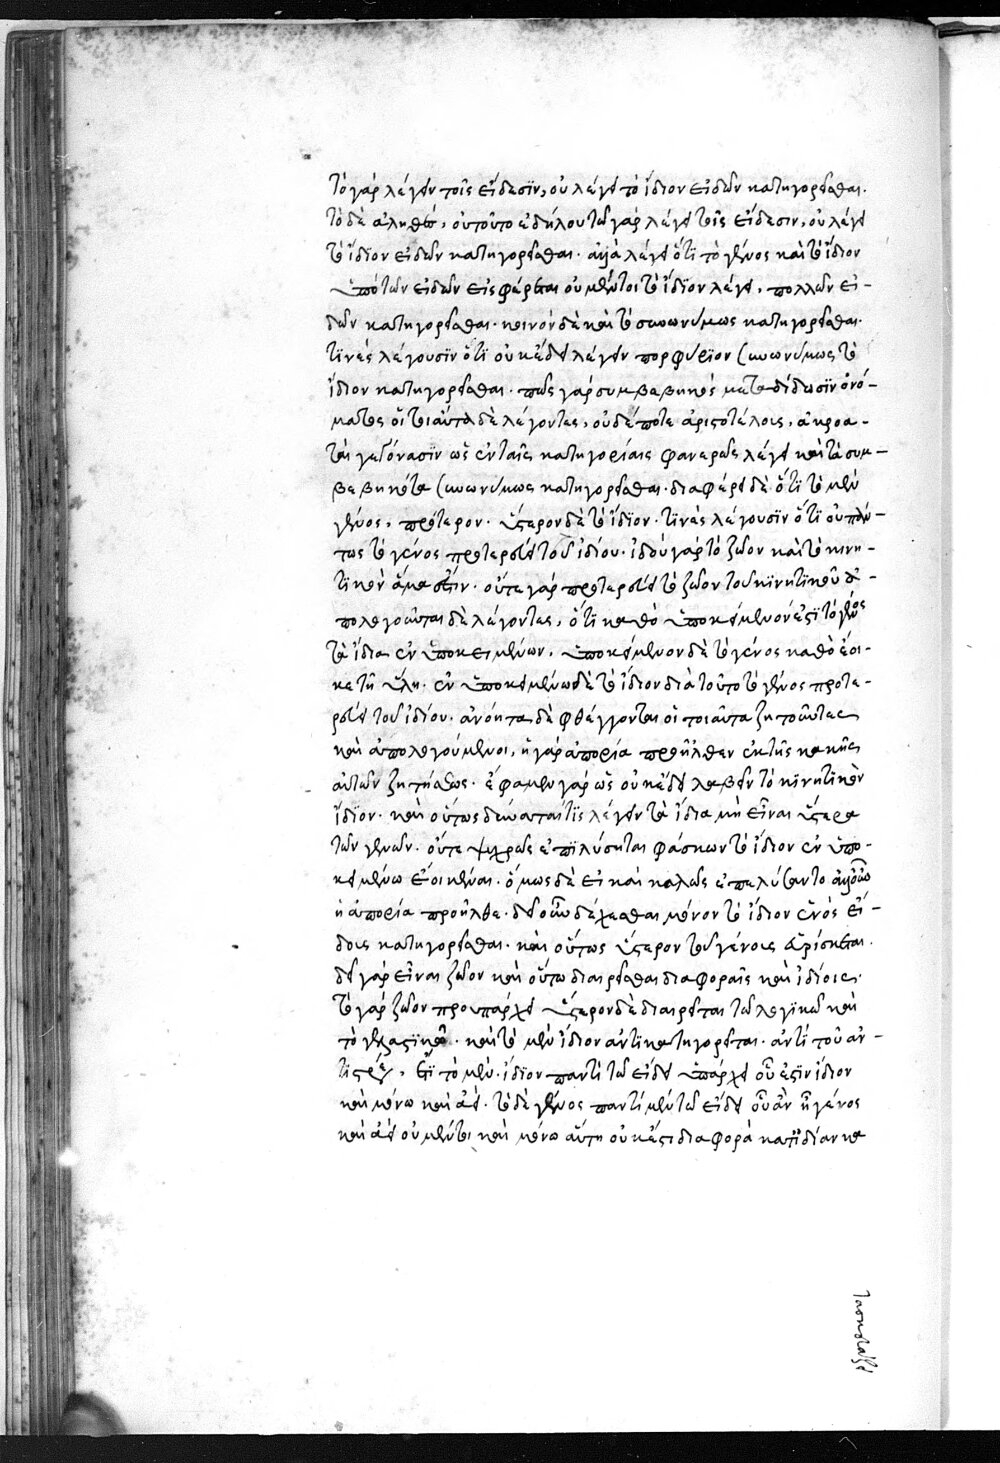 τὸ γὰρ λέγειν τοῖς εἴδεσϊν, οὐ λέγει τὸ ἴδιον εἰδῶν κατηγορεῖσθαι.
τὸ δὲ ἀληθὲς, οὐ τοῦτο ἐδήλου τῶ γὰρ λέγει τοῖς εἴδεσιν, οὐ λέγει
τὸ ἴδϊον εἰδῶν κατηγορεῖσθαι. ἀλλὰ λέγει ὅτι τὸ γένος καὶ τὸ ἴδιον
ὑπὸ τῶν εἰδῶν εἰσφέρεται οὐ μέντοι τὸ ἴδϊον λέγει, πολλῶν εἰ-
δῶν κατηγορεῖσθαι. κοινὸν δὲ καὶ τὸ συνωνύμως κατηγορεῖσθαι.
τϊνὲς λέγουσϊν ὅτϊ οὐκ ἔδει λέγειν πορφύρϊον συνωνύμως τὸ
ἴδιον κατηγορεῖσθαι. πῶς γὰρ συμβεβηκὸς μεταδίδωσϊν ὀνό-
ματος οἱ τοιαῦτα δὲ λέγοντες, οὐδέποτε ἀριστοτέλους, ἀκροα-
ταὶ γεγόνασϊν ὡς ἐν ταῖς κατηγορίαις φανερῶς λέγει καὶ τὰ συμ-
βεβηκότα συνωνύμως κατηγορεῖσθαι. διαφέρει δὲ ὅτϊ τὸ μὲν
γένος, πρότερον. ὕστερον δὲ τὸ ἴδϊον. τϊνὲς λέγουσϊν ὅτϊ οὐ πάν-
τως τὸ γένος προτερεῖ τοῦ ἰδίου. ἰδοὺ γὰρ τὸ ζῶον καὶ τὸ κινη-
τϊκὸν ἅμα ἐστίν. οὔτε γὰρ προτερεῖ τὸ ζῶον τοῦ κϊνητϊκοῦ ἀ-
πολογοῦνται δὲ λέγοντες, ὅτϊ καθὸ ὑποκείμενόν ἐστϊ τὸ γένος
τὰ ἴδια ἐν ὑποκειμένων. ὑποκείμενον δὲ τὸ γένος καθὸ ἔοι-
κε τῆ ὕλη. ἐν ὑποκειμένω δὲ τὸ ἴδιον διὰ τοῦτο τὸ γένος προτε-
ρεῖ τοῦ ἰδίου. ἀνόητα δὲ φθέγγονται οἱ τοιαῦτα ζητοῦντες
καὶ ἀπολογούμενοι, ἡ γὰρ ἀπορία προῆλθεν ἐκ τῆς κακῆς
αὐτῶν ζητήσεως. ἔφαμεν γὰρ ὡς οὐκ ἔδει λαβεῖν τὸ κϊνητϊκὸν
ἴδϊον. καὶ οὕτως δύναταί τϊς λέγειν τὰ ἴδια μὴ εἶναι ὕστερα
τῶν γενῶν. οὔτε ψυχρῶς ἐπϊλύσηται φάσκων τὸ ἴδιον ἐν ὑπο-
κειμένω ἐοικέναι. ὅμως δὲ εἰ καὶ καλῶς ἐπελύσαντο
ἡ ἀπορία προῆλθε. δεῖ οὖν δέχεσθαι μόνον τὸ ἴδιον ἑνὸς εἴ-
δους κατηγορεῖσθαι. καὶ οὕτως ὕστερον τοῦ γένους εὑρίσκεται.
δεῖ γὰρ εἶναι ζῶον καὶ οὕτω διαιρεῖσθαι διαφοραῖς καὶ ἰδίοις.
τὸ γὰρ ζῶον προυπάρχει ὕστερον δὲ διαιρεῖται τῶ λογϊκῶ καὶ
τὸ γελαστϊκῶ. καὶ τὸ μὲν ἴδιον ἀντϊκατηγορεῖται. ἀντὶ τοῦ ἀν-
τϊστρέφει. ἔτϊ τὸ μὲν. ἴδϊον παντὶ τῶ εἴδει ὑπάρχει οὗ ἐστϊν ἴδιον
καὶ μόνω καὶ ἀεί. τὸ δὲ γένος παντὶ μὲν τῶ εἴδει οὗ ἂν ἦ γένος
καὶ ἀεὶ οὐ μέντοι καὶ μόνω αὕτη οὐκ ἔστι διαφορὰ κατ' ἰδίαν κα